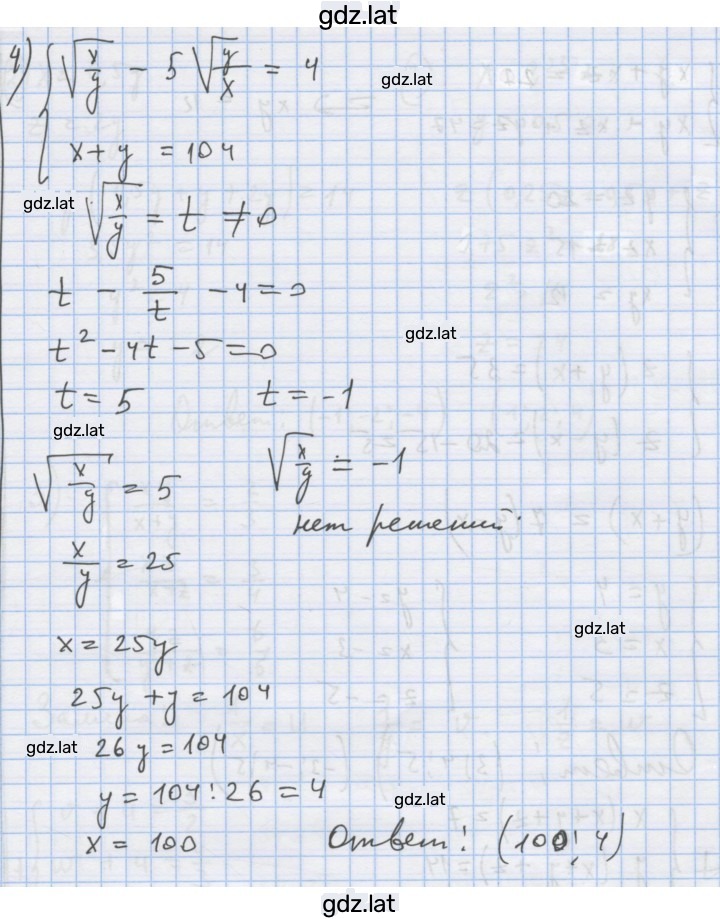 gdz.lat
4) { √(x/y) - 5 √(y/x) = 4
gdz.lat
x + y = 104
gdz.lat
√(x/y) = t ≠ 0
t - 5/t - 4 = 0
gdz.lat
t² - 4t - 5 = 0
t = 5 t = -1
gdz.lat
√(x/y) = 5 √(x/y) = -1
нет решений.
x/y = 25
gdz.lat
x = 25y
25y + y = 104
gdz.lat 26y = 104
y = 104 : 26 = 4
gdz.lat
x = 100 Ответ: (100; 4)
gdz.lat